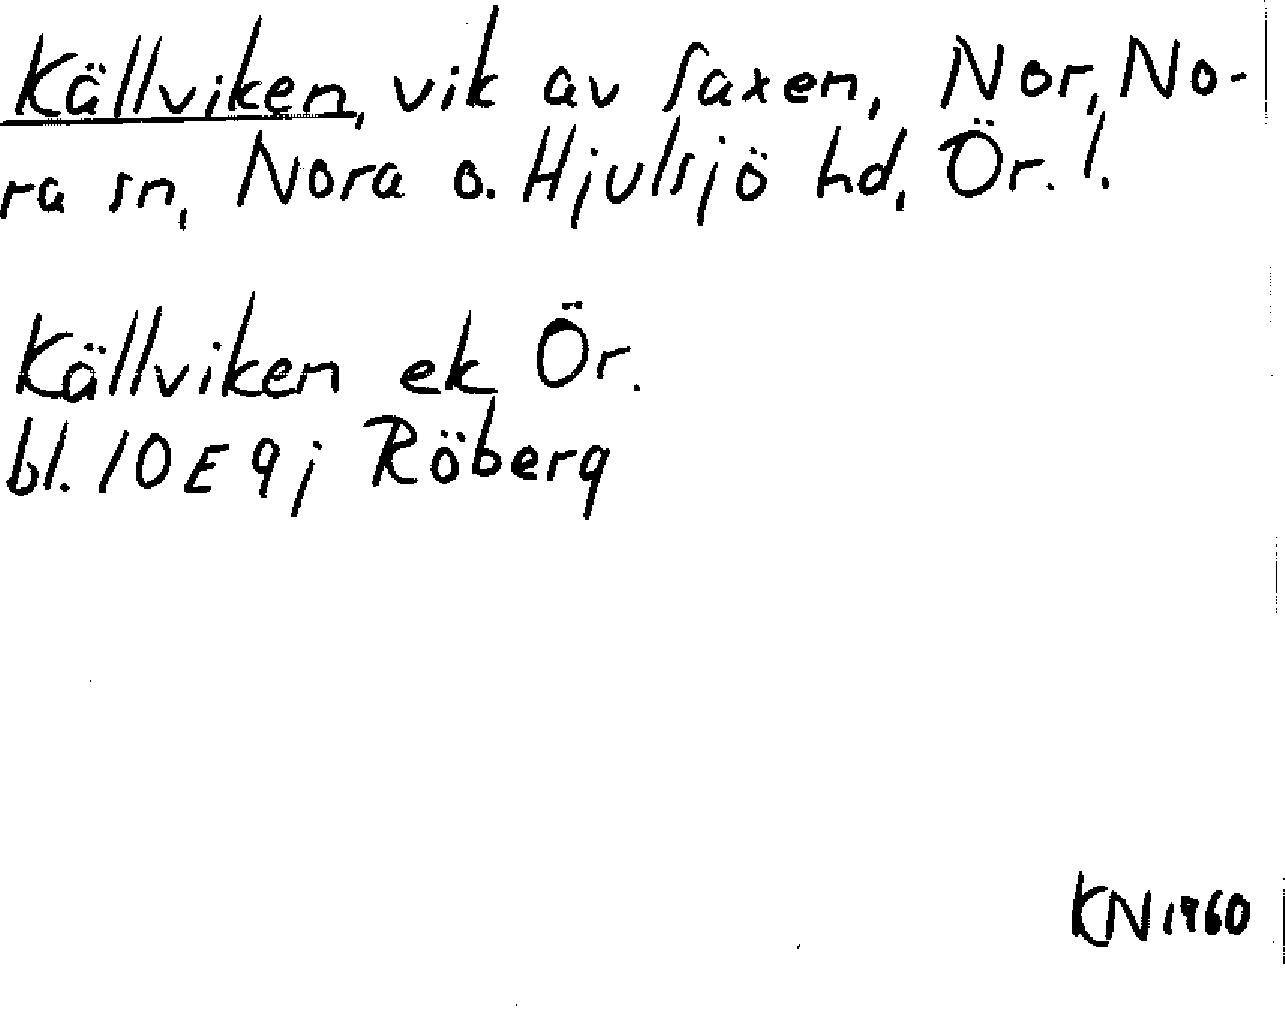 Källviken, vik av Saxen, Nor, No-
ra sn, Nora o. Hjulsjö hd, Ör. l.
Källviken ek Ör.
bl. 10E 9j Röberg
KN 1960